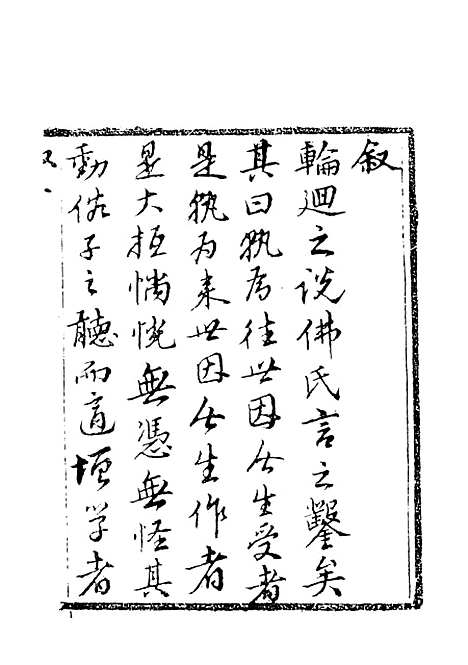 叙
輪迴之說佛氏言之鑿矣
其曰孰為徃世因今生受者
是孰為來世因今生作者
是大抵惝怳無憑無怪其
動俗子之聽而適埴学者